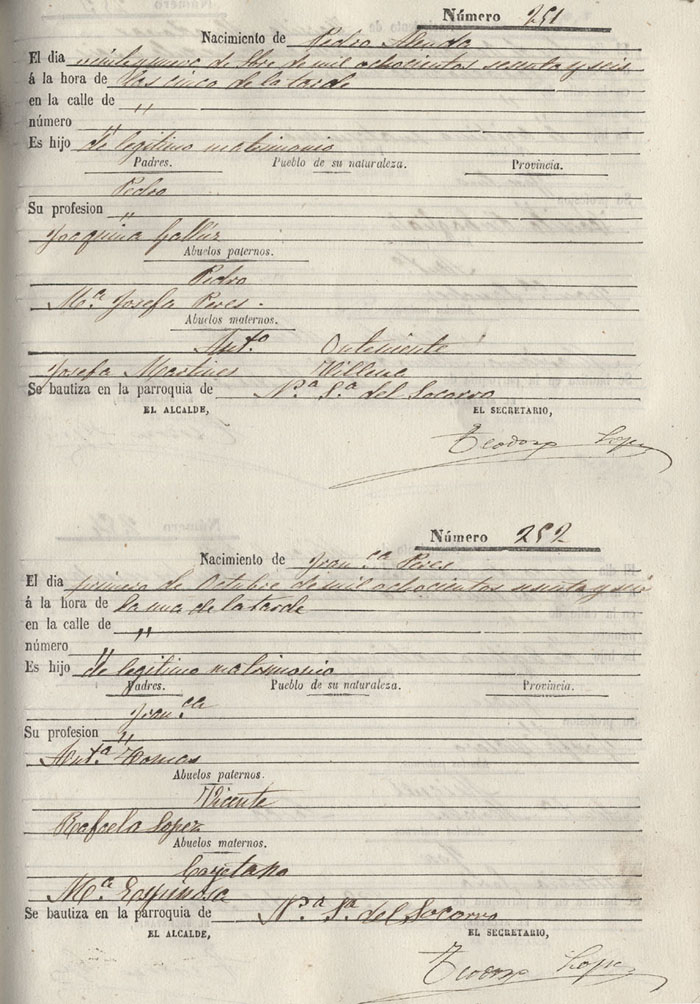 Número 251
Nacimiento de Pedro Menda
El dia veintenueve de 9bre de mil ochocientos sesenta y seis
á la hora de las cinco de la tarde
en la calle de "
número "
Es hijo de legitimo matrimonio
Padres. Pueblo de su naturaleza. Provincia.
Pedro
Su profesion "
Joaquina Gallur
Abuelos paternos.
Pedro
Mª Josefa Peres.
Abuelos maternos.
Antº Onteniente
Josefa Martines Villena
Se bautiza en la parroquia de Nª Sª del Socorro
EL ALCALDE, EL SECRETARIO,
Teodoro Lopez
Número 252
Nacimiento de Franca Peres
El dia primero de Octubre de mil ochocientos sesenta y seis
á la hora de la una de la tarde
en la calle de "
número "
Es hijo de legitimo matrimonio
Padres. Pueblo de su naturaleza. Provincia.
Franco
Su profesion "
Antª Tomas
Abuelos paternos.
Vicente
Rafaela Lopez
Abuelos maternos.
Cayetano
Mª Espinosa
Se bautiza en la parroquia de Nª Sª del Socorro
EL ALCALDE, EL SECRETARIO,
Teodoro Lopez